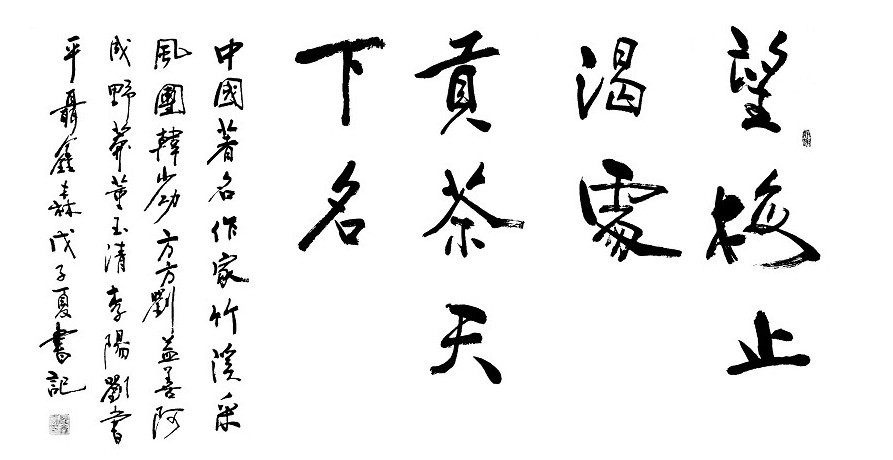 望梅止
渴處
貢茶天
下名
中國著名作家竹溪采
風團韓少功方方劉益善阿
成野莽董玉清李陽劉書
平聶鑫森戊子夏書記